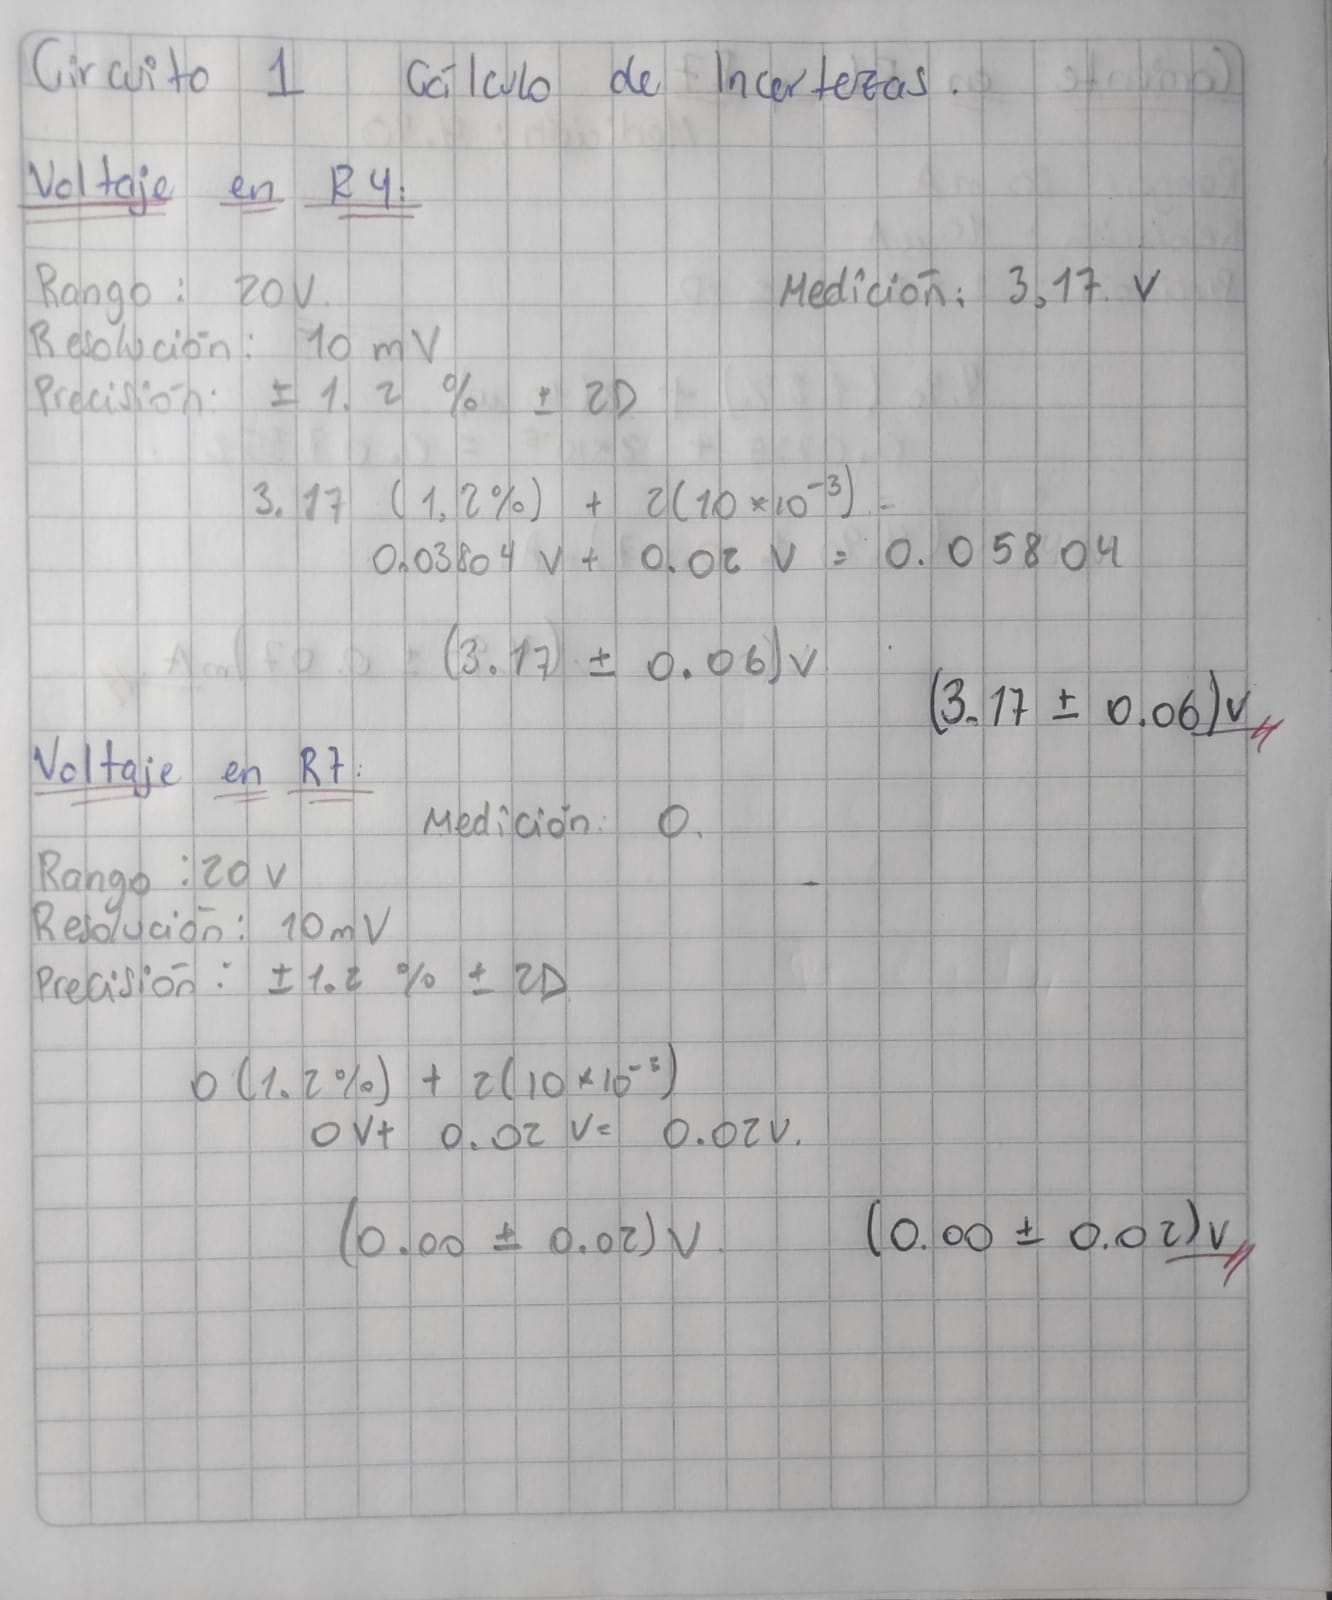 Circuito 1 Cálculo de Incertezas.
Voltaje en R4:
Rango: 20V. Medición: 3,17 V
Resolución: 10 mV
Precisión: ± 1.2 % ± 2D
3.17 (1.2%) + 2(10×10⁻³) =
0.03804 V + 0.02 V = 0.05804
(3.17 ± 0.06)V
(3.17 ± 0.06)V
Voltaje en R7:
Medición: 0.
Rango: 20 V
Resolución: 10mV
Precisión: ± 1.2 % ± 2D
0(1.2%) + 2(10×10⁻³)
0V+ 0.02 V= 0.02V.
(0.00 ± 0.02)V (0.00 ± 0.02)V